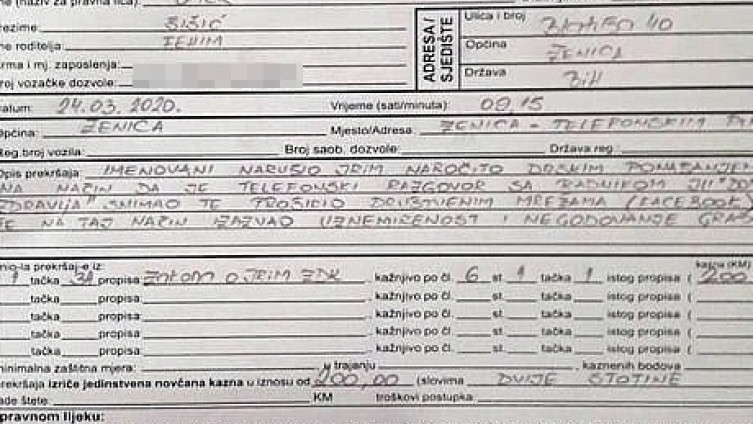 me (naziv za pravna lica):
ezime: ŠIŠIĆ
me roditelja
irma i mj. zaposlenja:
roj vozačke dozvole:
ADRESA / SJEDIŠTE
Ulica i broj 40
Općina ZENICA
Država BiH
atum: 24.03.2020. Vrijeme (sati/minuta): 09,15
pćina: ZENICA Mjesto/Adresa: ZENICA - TELEFONSKIM
Reg.broj vozila: Broj saob. dozvole: Država reg.:
Opis prekršaja: IMENOVANI NARUŠIO JRIM NAROČITO DRSKIM PONAŠANJEM
NA NAČIN DA JE TELEFONSKI RAZGOVOR SA RADNIKOM JU "DOM
ZDRAVLJA" SNIMAO TE PROŠIRIO DRUŠTVENIM MREŽAMA (FACEBOOK)
JE NA TAJ NAČIN IZAZVAO UZNEMIRENOST I NEGODOVANJE GRAĐ
nio-la prekršaj-e iz: kazna (KM)
1 tačka 3A propisa Zakon o JRIM ZDK , kažnjivo po čl. 6 st. 1 tačka 1 istog propisa ( 200
tačka propisa: , kažnjivo po čl. st. tačka istog propisa (
tačka propisa: , kažnjivo po čl. st. tačka istog propisa (
tačka propisa: , kažnjivo po čl. st. tačka istog propisa (
tačka propisa: , kažnjivo po čl. st. tačka istog propisa (
minimalna zaštitna mjera: u trajanju , kaznenih bodova
prekršaja izriče jedinstvena novčana kazna u iznosu od 200,00 (slovima DVIJE STOTINE
ade štete: KM troškovi postupka:
pravnom lijeku: